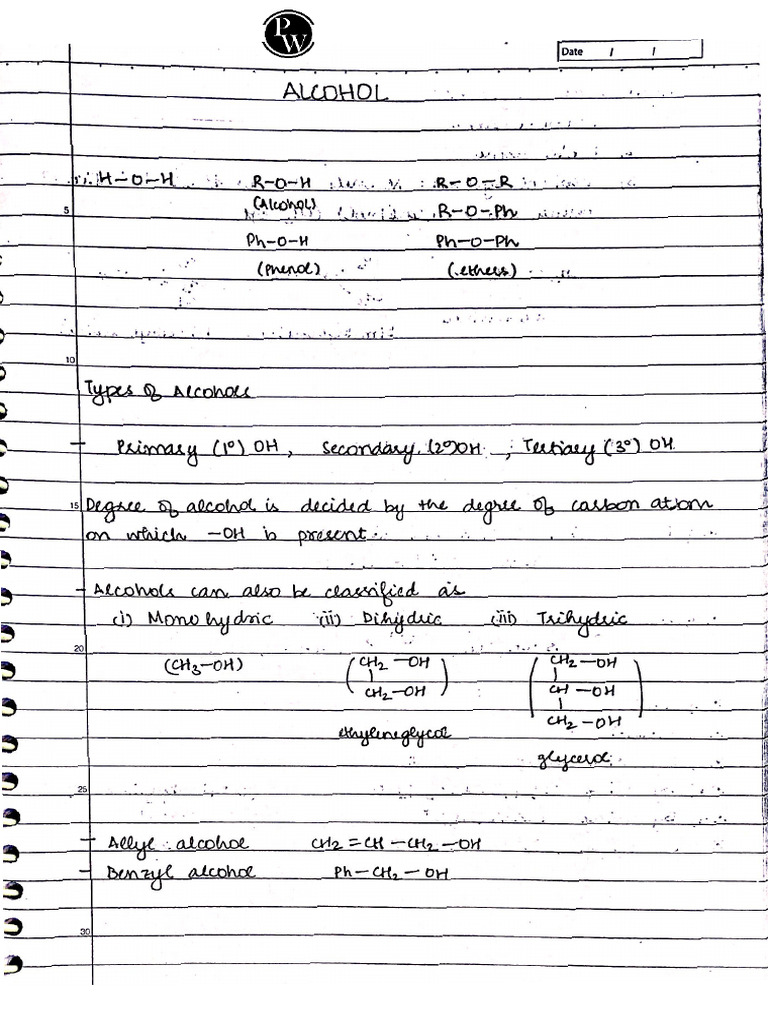 PW
Date / /
ALCOHOL
H-O-H R-O-H R-O-R
(Alcohol) R-O-Ph
5
Ph-O-H Ph-O-Ph
(Phenol) (ethers)
10
Types of Alcohols
- Primary (1°) OH, Secondary (2°)OH, Tertiary (3°) OH
15 Degree of alcohol is decided by the degree of carbon atom
on which -OH is present.
- Alcohols can also be classified as
(i) Monohydric (ii) Dihydric (iii) Trihydric
20
(CH3-OH) (CH2-OH (CH2-OH
| |
CH2-OH) CH-OH
|
CH2-OH)
ethyleneglycol
glycerol
25
- Allyl alcohol CH2=CH-CH2-OH
- Benzyl alcohol Ph-CH2-OH
30